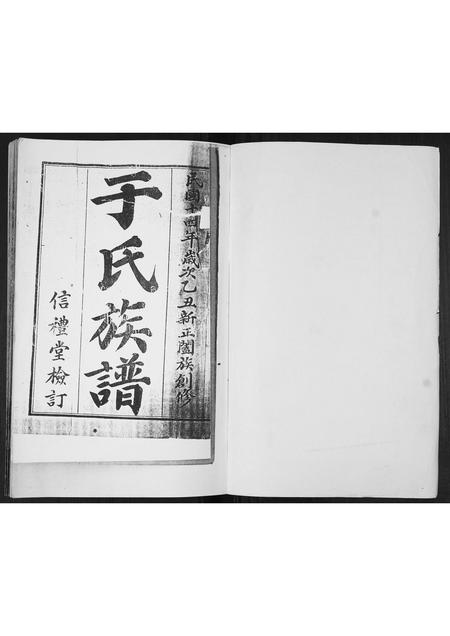 民國十四年歲次乙丑新正闔族創修
于氏族譜
信禮堂檢訂